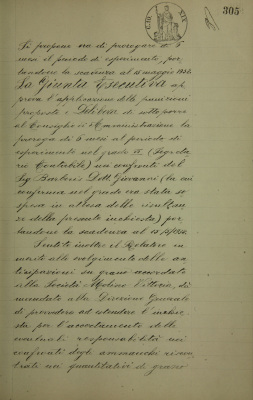 305
Si propone ora di prorogare di 6
mesi il periodo di esperimento, por-
tandone la scadenza al 15 maggio 1936.
La Giunta Esecutiva ap-
prova l'applicazione delle punizioni
proposte e Delibera di sottoporre
al Consiglio d'Amministrazione la
proroga di 6 mesi al periodo di
esperimento nel grado
Contabile) nei confronti del
Sig. Dott. Giovanni (la cui
conferma nel grado era stata so-
spesa in attesa delle risultan-
ze della presente inchiesta) por-
tandone la scadenza al
Sentito inoltre il Relatore in
merito allo svolgimento delle an-
ticipazioni su grano accordate
alla Società Molino Vittoria, di
mandato alla Direzione Generale
di provvedere ad estendere l'inchie-
sta per l'accertamento delle
eventuali responsabilità nei
confronti degli ammanchi riscon-
trati nei quantitativi di grano